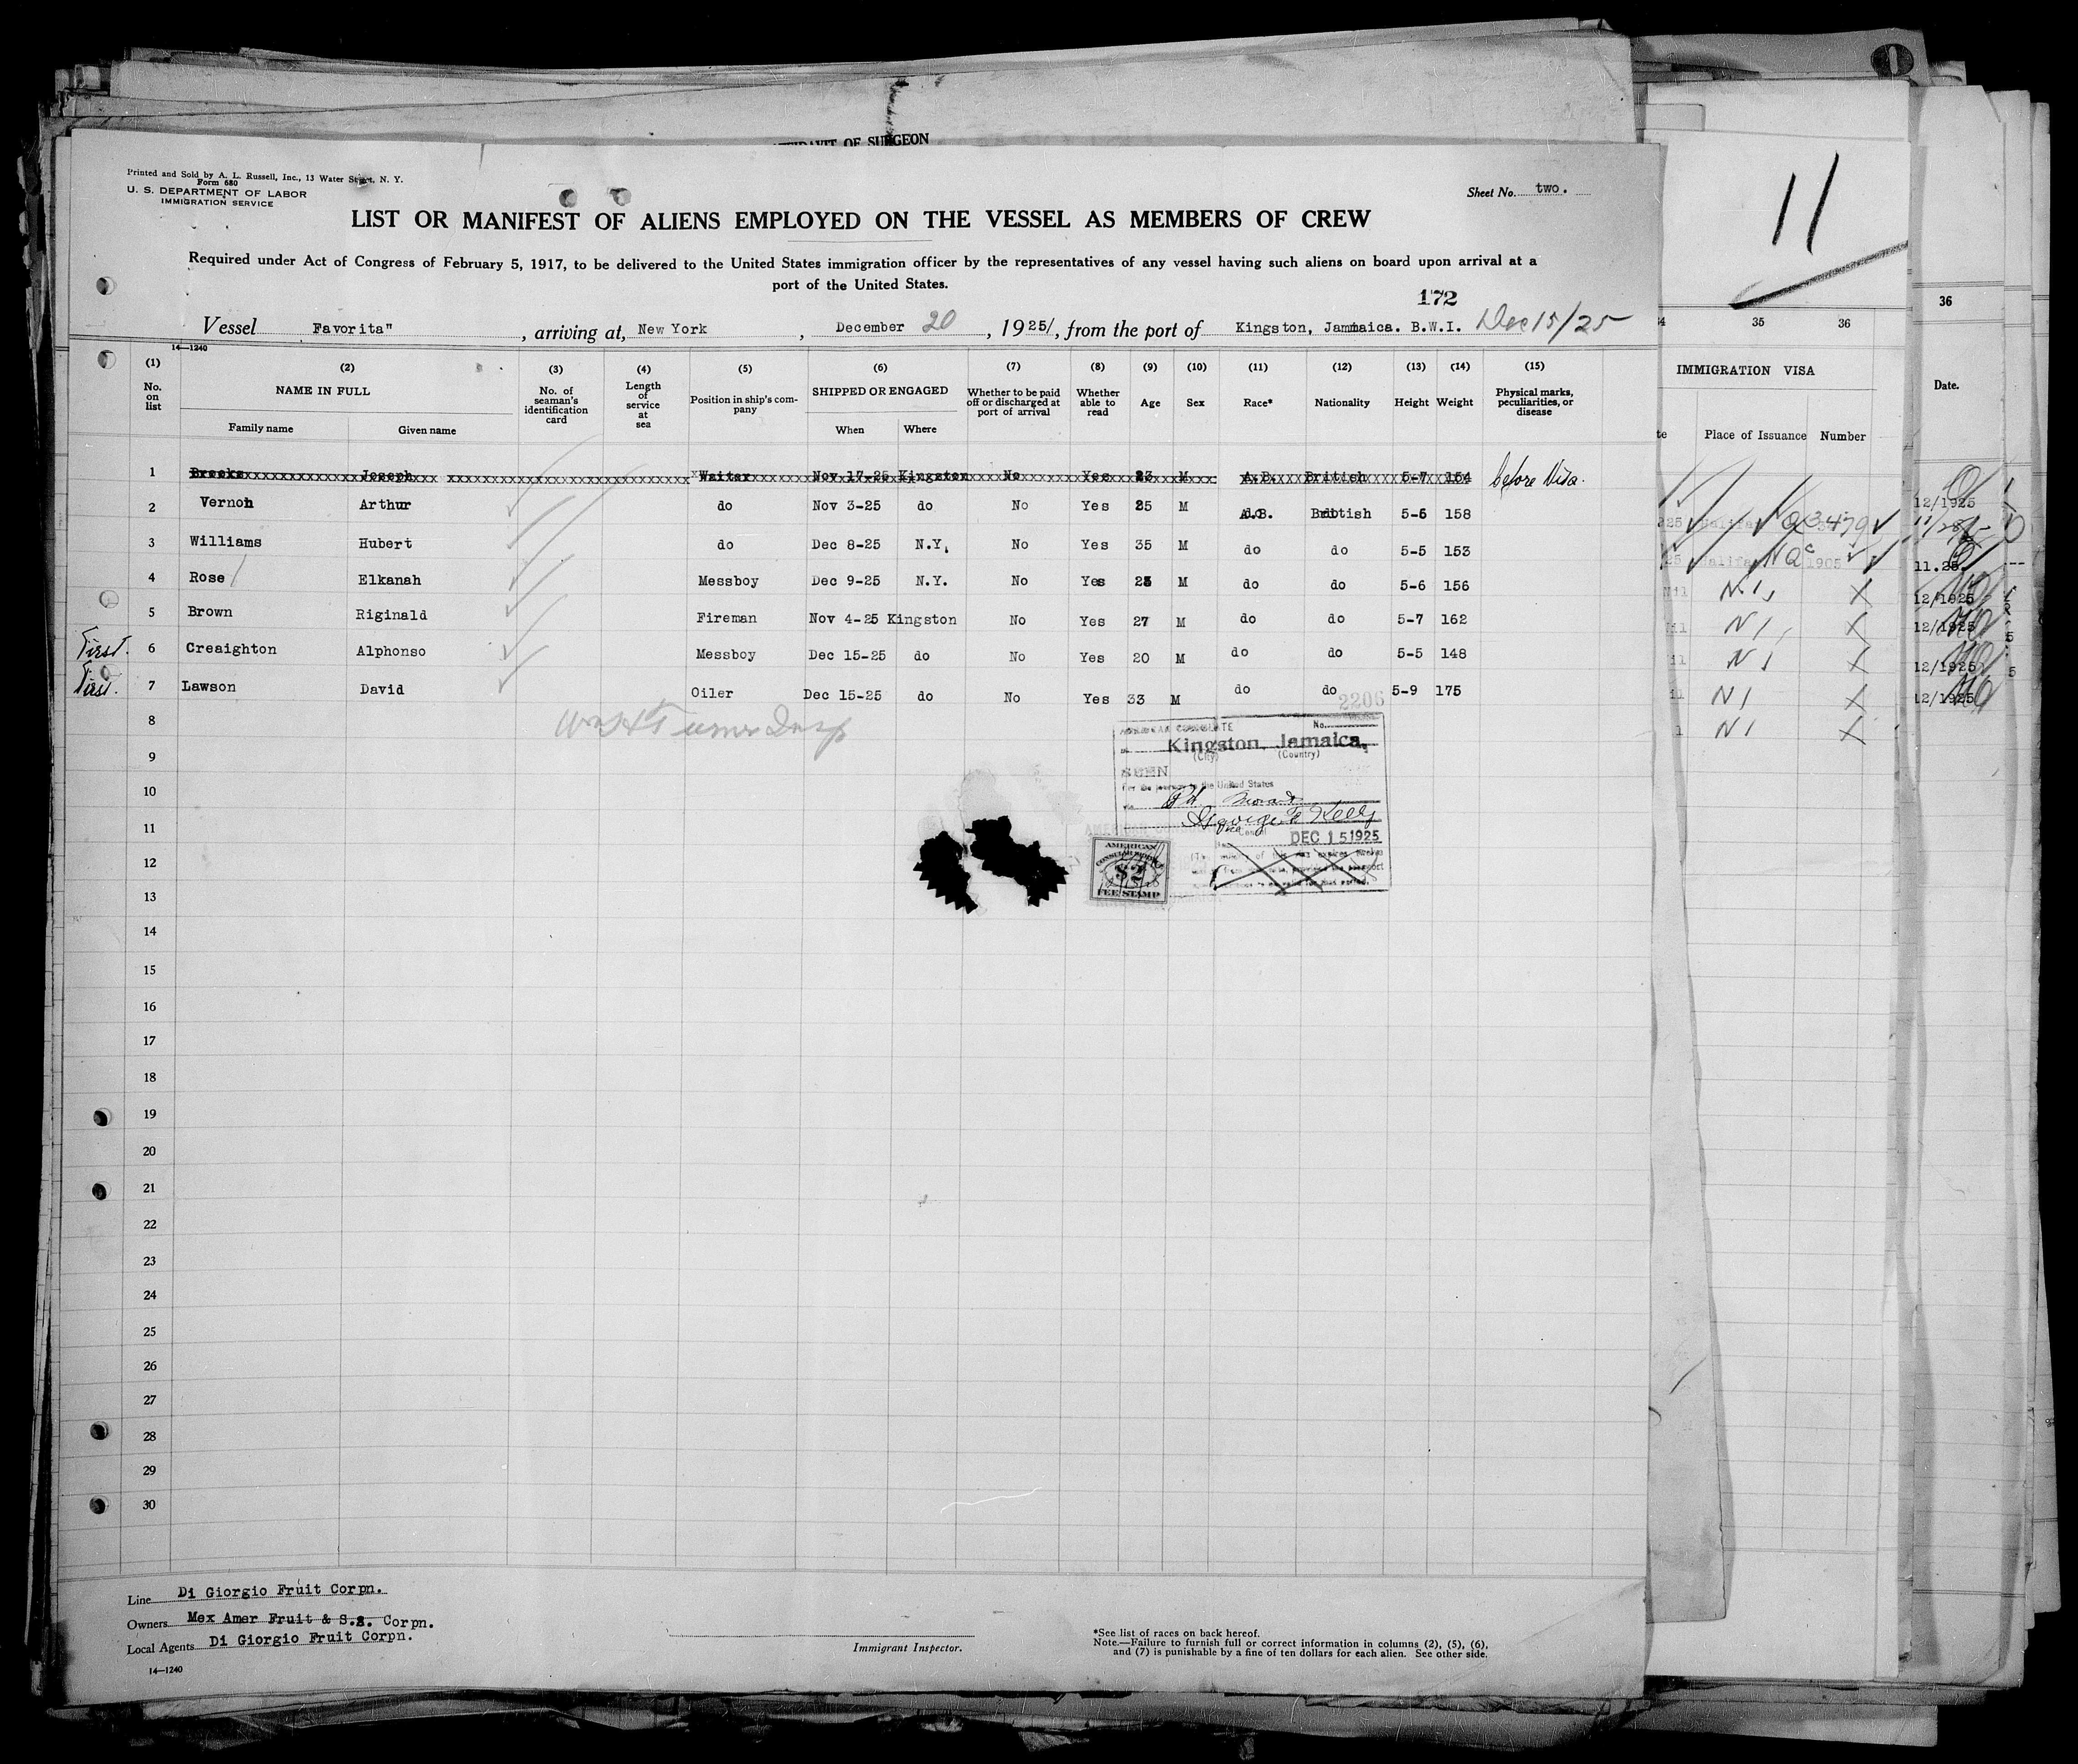 OF SURGEON
Printed and Sold by A. L. Russell, Inc., 13 Water Street, N. Y.
Form 680
U. S. DEPARTMENT OF LABOR
IMMIGRATION SERVICE
Sheet No. two.
LIST OR MANIFEST OF ALIENS EMPLOYED ON THE VESSEL AS MEMBERS OF CREW
Required under Act of Congress of February 5, 1917, to be delivered to the United States immigration officer by the representatives of any vessel having such aliens on board upon arrival at a
port of the United States.
172
Vessel Favorita", arriving at, New York, December 20, 1925, from the port of Kingston, Jamaica. B.W.I. Dec 15/25
14—1240
(1) (2) (3) (4) (5) (6) (7) (8) (9) (10) (11) (12) (13) (14) (15)
No. on list NAME IN FULL Family name Given name No. of seaman's identification card Length of service at sea Position in ship's company SHIPPED OR ENGAGED When Where Whether to be paid off or discharged at port of arrival Whether able to read Age Sex Race* Nationality Height Weight Physical marks, peculiarities, or disease
1 Brooks Joseph Waiter Nov 17-25 Kingston No Yes 23 M A.B. British 5-7 154 before Visa.
2 Vernon Arthur do Nov 3-25 do No Yes 25 M A.B. British 5-6 158
3 Williams Hubert do Dec 8-25 N.Y. No Yes 35 M do do 5-5 153
4 Rose Elkanah Messboy Dec 9-25 N.Y. No Yes 23 M do do 5-6 156
5 Brown Riginald Fireman Nov 4-25 Kingston No Yes 27 M do do 5-7 162
First. 6 Creaighton Alphonso Messboy Dec 15-25 do No Yes 20 M do do 5-5 148
First. 7 Lawson David Oiler Dec 15-25 do No Yes 33 M do do 5-9 175
2206
8
9
10
11
12
13
14
15
16
17
18
19
20
21
22
23
24
25
26
27
28
29
30
AMERICAN CONSULATE No.
at Kingston, Jamaica,
(City) (Country)
SEEN
For the journey to the United States
Consul
DEC 15 1925
AMERICAN
CONSULAR SERVICE
$2
FEE STAMP
Line Di Giorgio Fruit Corpn.
Owners Mex Amer Fruit & S.S. Corpn.
Local Agents Di Giorgio Fruit Corpn.
14—1240
Immigrant Inspector.
*See list of races on back hereof.
Note.—Failure to furnish full or correct information in columns (2), (5), (6),
and (7) is punishable by a fine of ten dollars for each alien. See other side.
11
35 36
IMMIGRATION VISA
Place of Issuance Number
36
Date.
12/1925
11.25
12/1925
12/1925
12/1925
12/1925